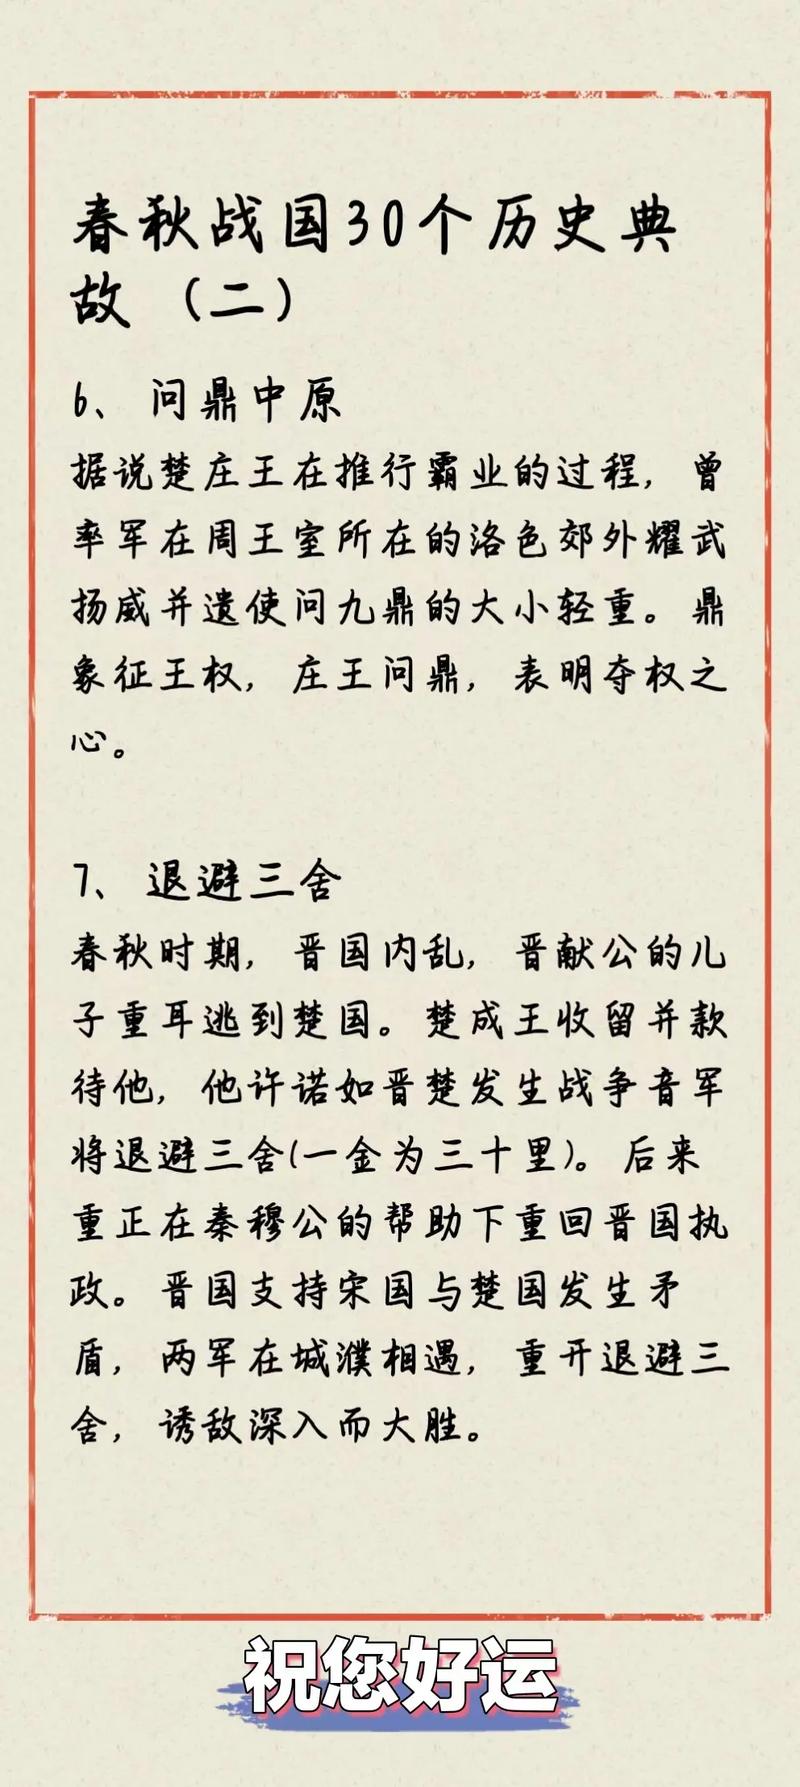 春秋战国30个历史典
故（二）
6、问鼎中原
据说楚庄王在推行霸业的过程，曾
率军在周王室所在的洛色郊外耀武
扬威并遗使问九鼎的大小轻重。鼎
象征王权，庄王问鼎，表明夺权之
心。
7、退避三舍
春秋时期，晋国内乱，晋献公的儿
子重耳逃到楚国。楚成王收留并款
待他，他许诺如晋楚发生战争音军
将退避三舍(一金为三十里)。后来
重正在秦穆公的帮助下重回晋国执
政。晋国支持宋国与楚国发生矛
盾，两军在城濮相遇，重开退避三
舍，诱敌深入而大胜。
祝您好运